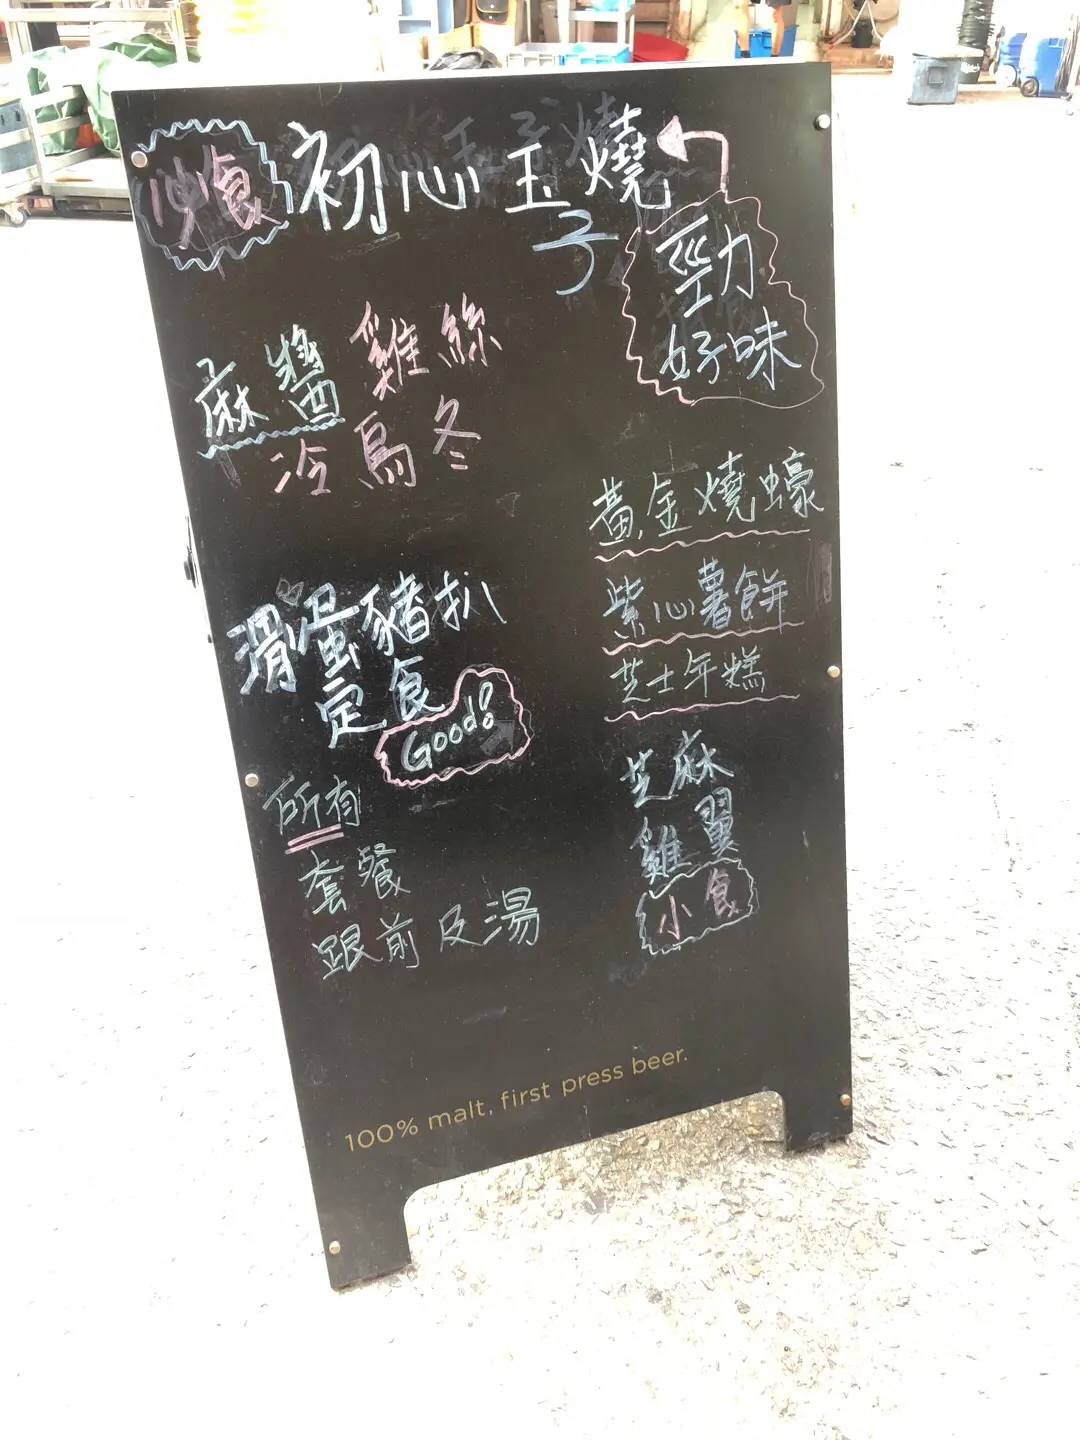 小食
初心玉子燒
勁
好味
麻醬雞絲
冷烏冬
滑蛋豬扒
定食
Good!
所有
套餐
跟前及湯
黃金燒蠔
紫心薯餅
芝士年糕
芝麻
雞翼
小食
100% malt, first press beer.